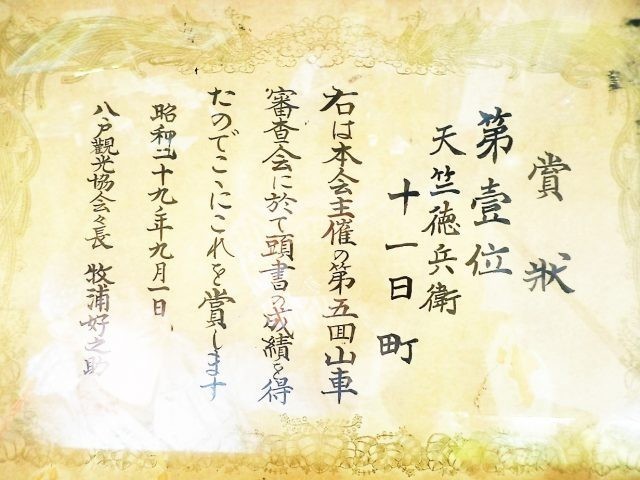 賞状
第壹位
天竺徳兵衛
十一日町
右は本会主催の第五回山車
審査会に於て頭書の成績を得
たのでこゝにこれを賞します
昭和二十九年九月一日
八戸觀光協会々長 牧浦好之助